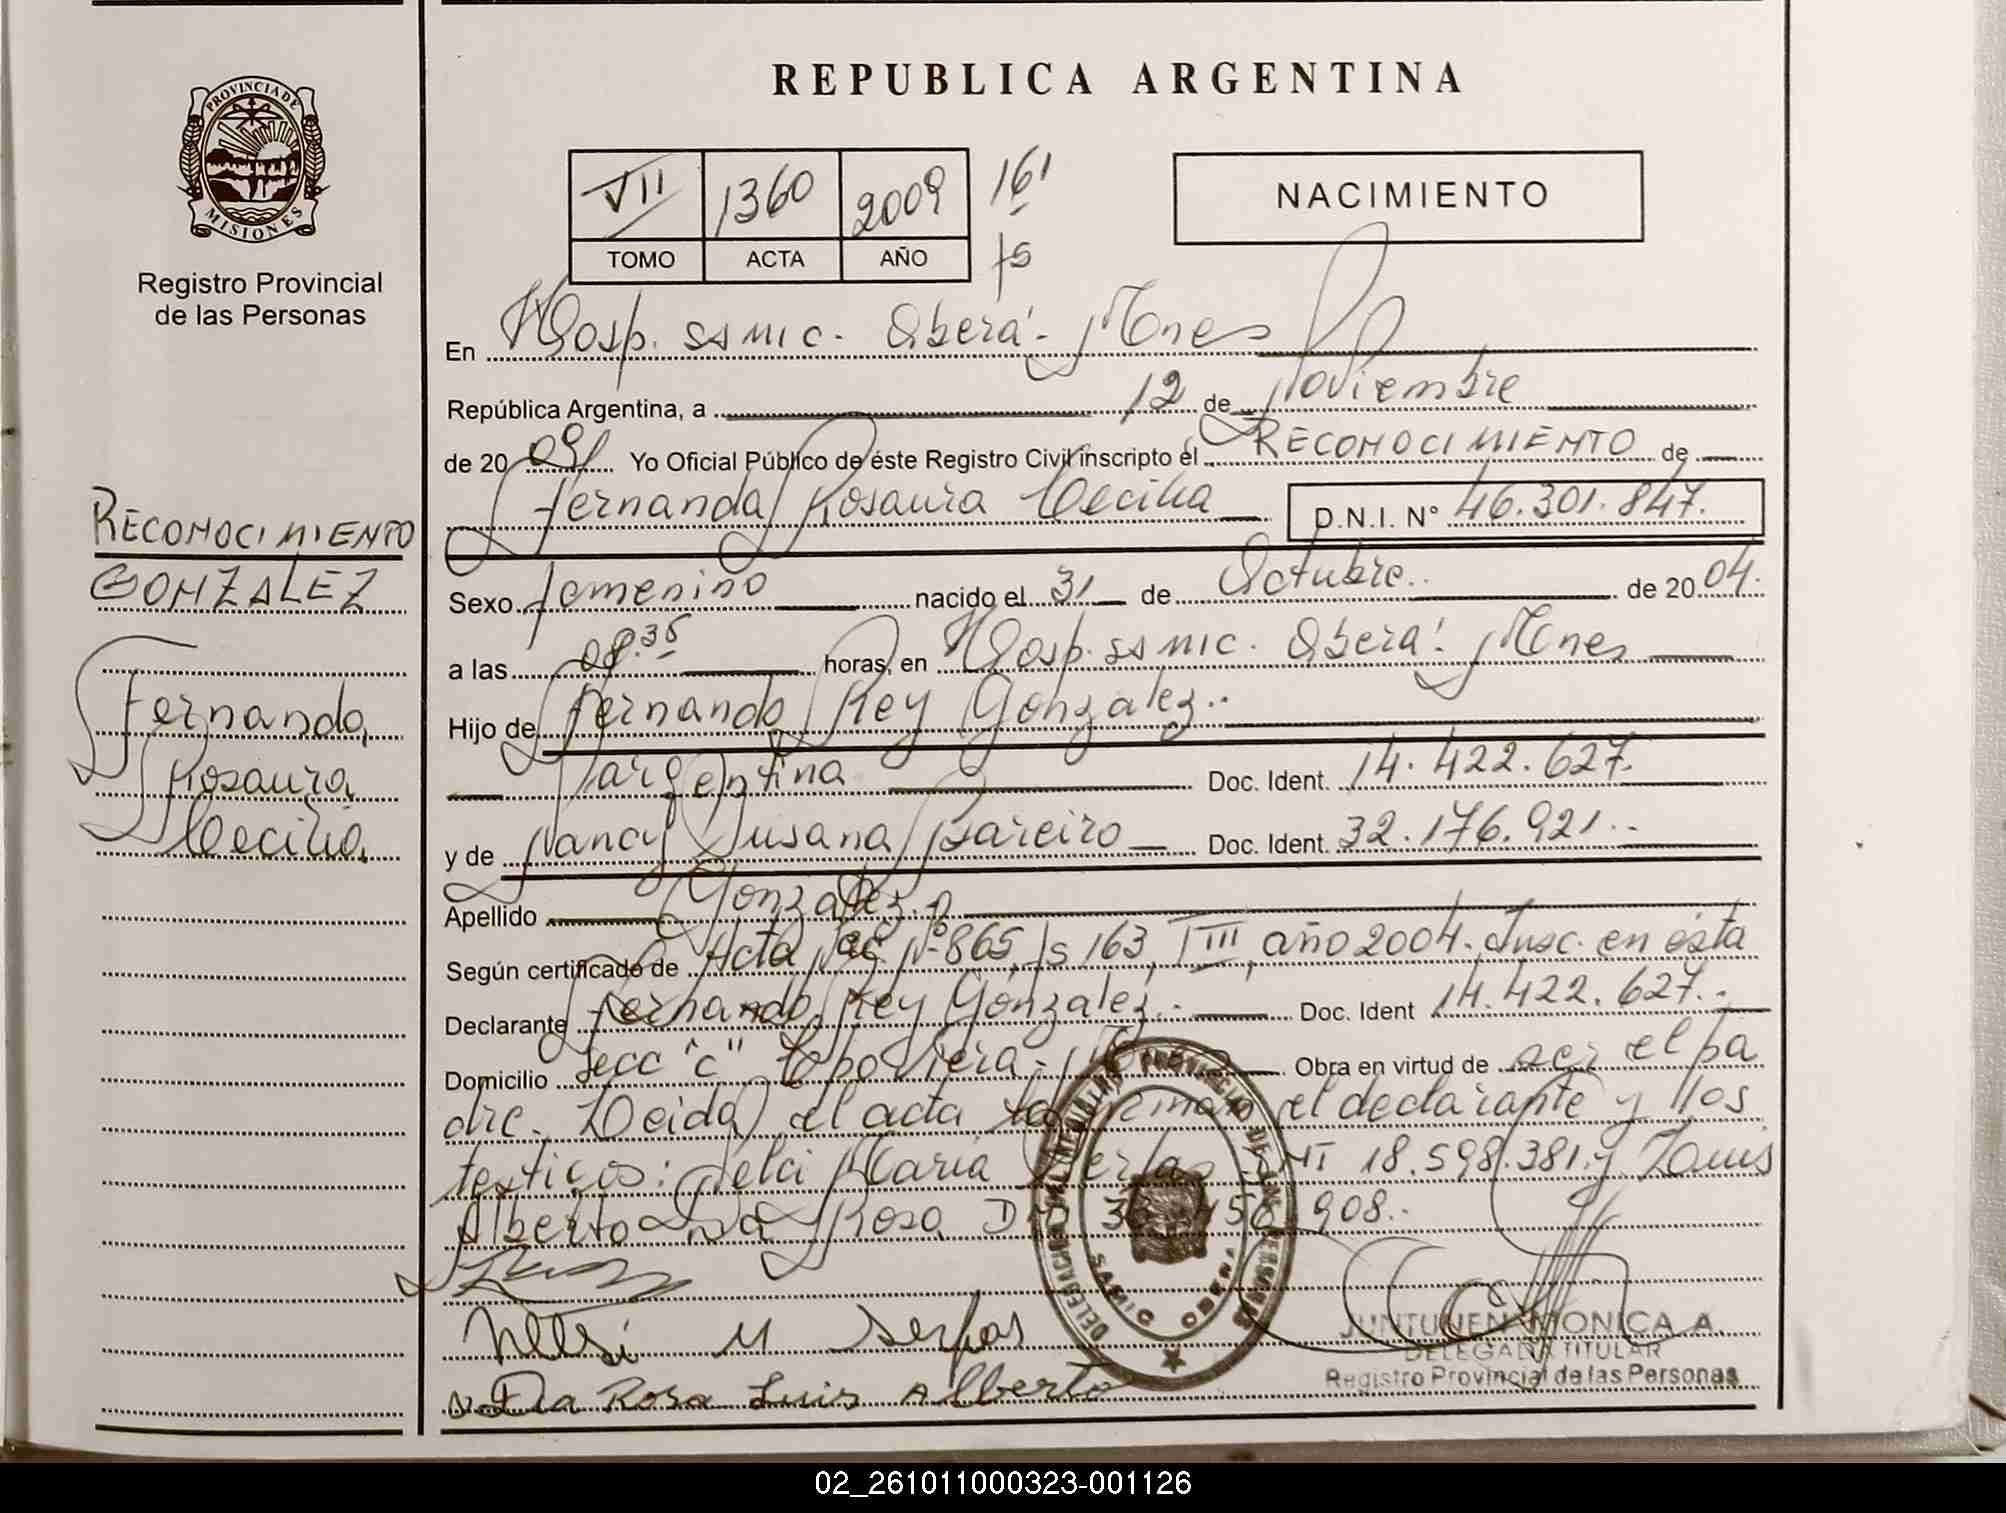 REPUBLICA ARGENTINA
PROVINCIA DE
MISIONES
Registro Provincial
de las Personas
VII 1360 2009 161
TOMO ACTA AÑO fs
NACIMIENTO
En Hosp. ssmic. Oberá - Mnes
República Argentina, a 12 de Noviembre
de 20 09 Yo Oficial Público de éste Registro Civil inscripto el RECONOCIMIENTO de
Fernanda Rosaura Cecilia D.N.I. N° 46.301.847.
RECONOCIMIENTO
GONZALEZ
Fernanda
Rosaura
Cecilia
Sexo femenino nacido el 31 de Octubre de 20 04.
a las 08.35 horas, en Hosp. ssmic. Oberá. Mnes
Hijo de Fernando Rey Gonzalez.
argentina Doc. Ident. 14.422.627.
y de Nancy Susana Bareiro Doc. Ident. 32.176.921.
Apellido Gonzalez.
Según certificado de Acta Nac N° 865, fs 163, T III, año 2004. Insc. en ésta
Declarante Fernando Rey Gonzalez. Doc. Ident 14.422.627.
Domicilio Secc "c" Obra en virtud de ser el pa
dre. Leida el acta la firman el declarante y llos
testigos: Maria 18.598.381. y Luis
Alberto Da Rosa 908.
M Serpas
Da Rosa Luis Alberto
JUNTUNEN MONICA A
DELEGADA TITULAR
Registro Provincial de las Personas
02_261011000323-001126